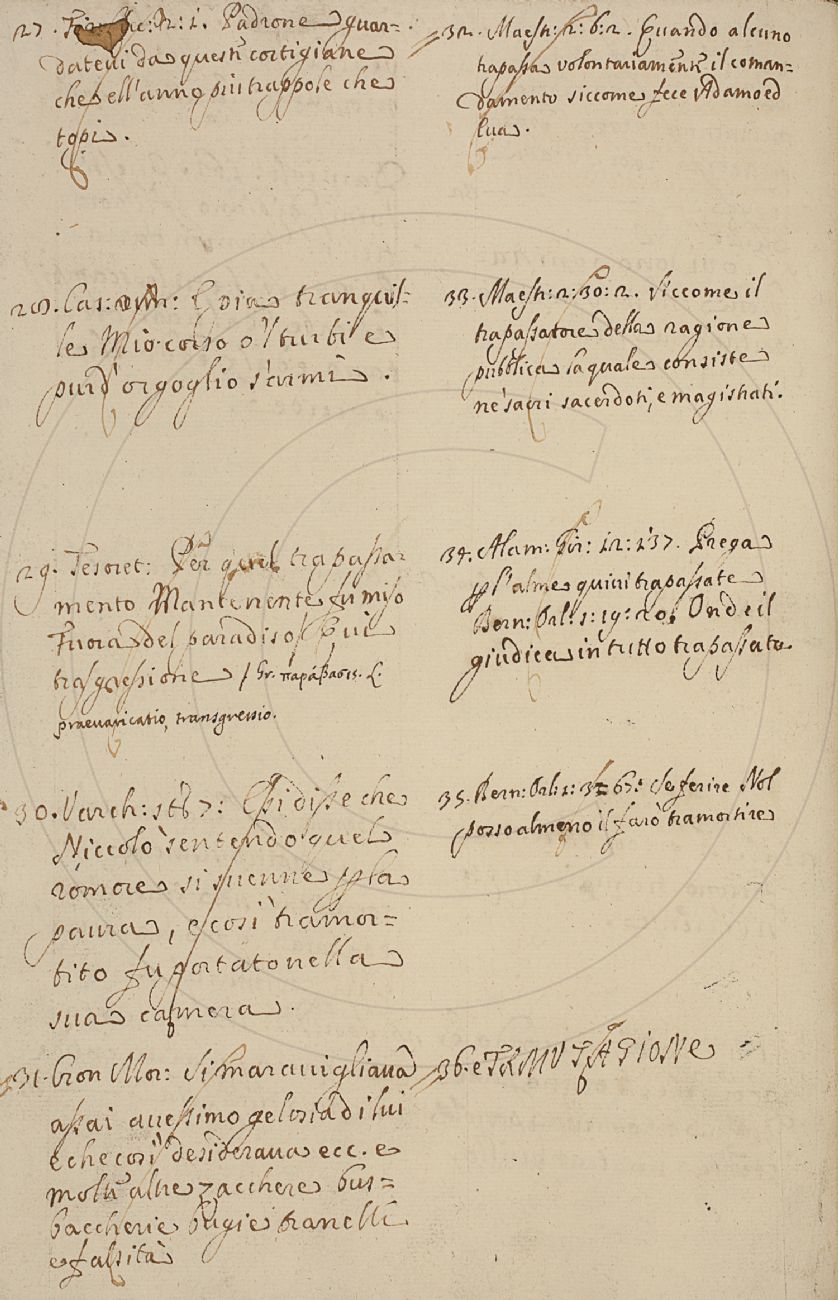 27. Fir: 2: 1. Padrone guar=
dateui da questi cortigiane
che ell'anno piu trappole che
topi.
28. Cas: E via tranquil=
le Mio corso o'l turbi e
pur d'orgoglio s'armi.
29. Tesoret: Per quel trapassa=
mento Mantenente fu miso
Fuora del paradiso / qui
trasgressione / Gr. παράβασις. L.
praevaricatio, transgressio.
30. Varch: st: 87: Essi disse che
Niccolò sentendo quel
romore si svenne p la
paura, e così tramor=
tito fu portato nella
sua camera.
31. Cron Mor: Si maravigliava
assai avessimo gelosia di lui
e che così desiderava ecc. e
molti altre zacchere bus=
baccherie bugie tranelli
e falsità
32. Maestr: 2: 6: 2. Quando alcuno
trapassa volontariamente il coman=
damento siccome fece Adamo ed
Eva.
33. Maestr: 2: 30: 2. Siccome il
trapassatore della ragione
pubblica la quale consiste
ne' sacri sacerdoti, e magistrati.
34. Alam: Gir: 12: 137. Prega
p l'alme quivi trapassate
Bern: Orl: 1: 19: 20. Onde il
giudica in tutto trapassato
35. Bern: Orl: 1: 67: Se ferire Nol
posso almeno il farò tramortire
36. e TRMUTAGIONe